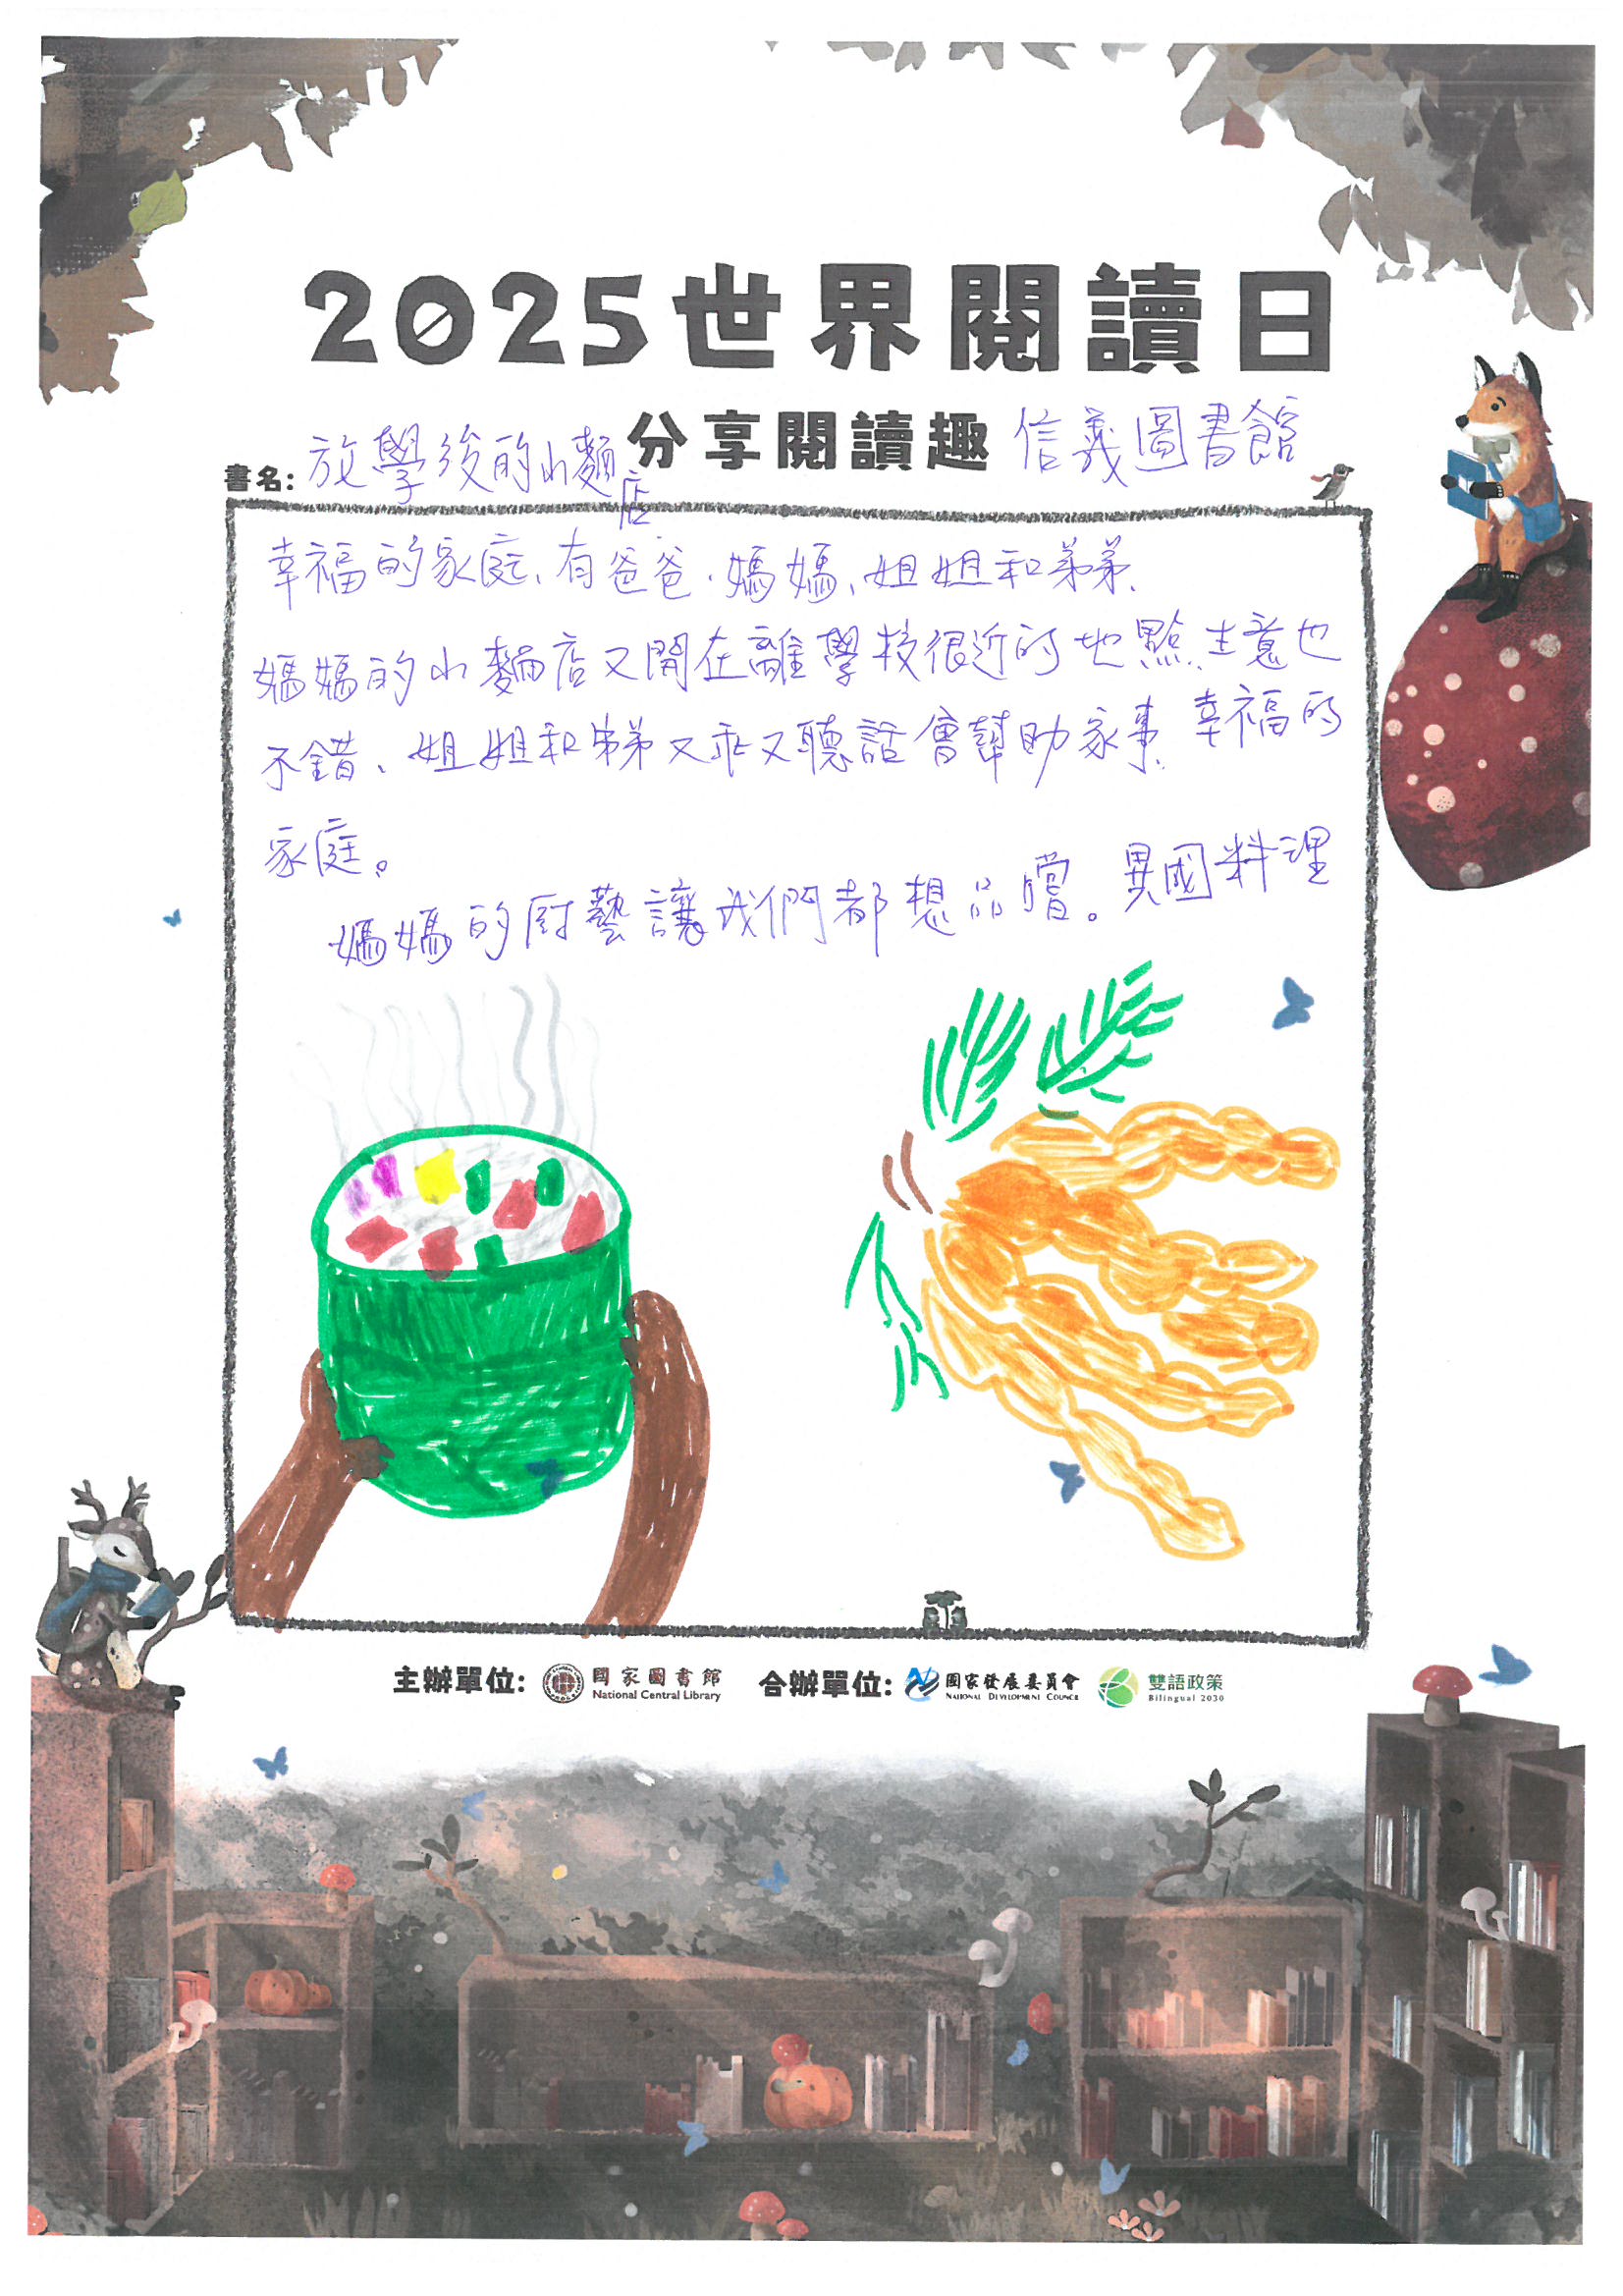 2025世界閱讀日
分享閱讀趣 信義圖書館
書名: 放學後的小麵店
幸福的家庭、有爸爸、媽媽、姐姐和弟弟、
媽媽的小麵店又開在離學校很近的地點、生意也
不錯、姐姐和弟弟又乖又聽話會幫助家事、幸福的
家庭。
媽媽的廚藝讓我們都想品嚐。異國料理
主辦單位: 國家圖書館 National Central Library 合辦單位: 國家發展委員會 NATIONAL DEVELOPMENT COUNCIL 雙語政策 Bilingual 2030